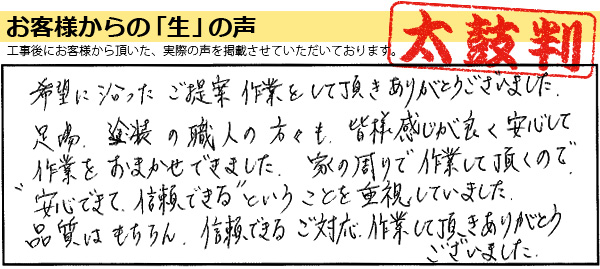 お客様からの「生」の声
工事後にお客様から頂いた、実際の声を掲載させていただいております。
太鼓判
希望に沿ったご提案 作業をして頂きありがとうございました.
足場、塗装の職人の方々も、皆様感じが良く安心して
作業をおまかせできました. 家の周りで作業して頂くので、
"安心できて、信頼できる"ということを重視していました.
品質はもちろん、信頼できるご対応、作業して頂きありがとう
ございました.